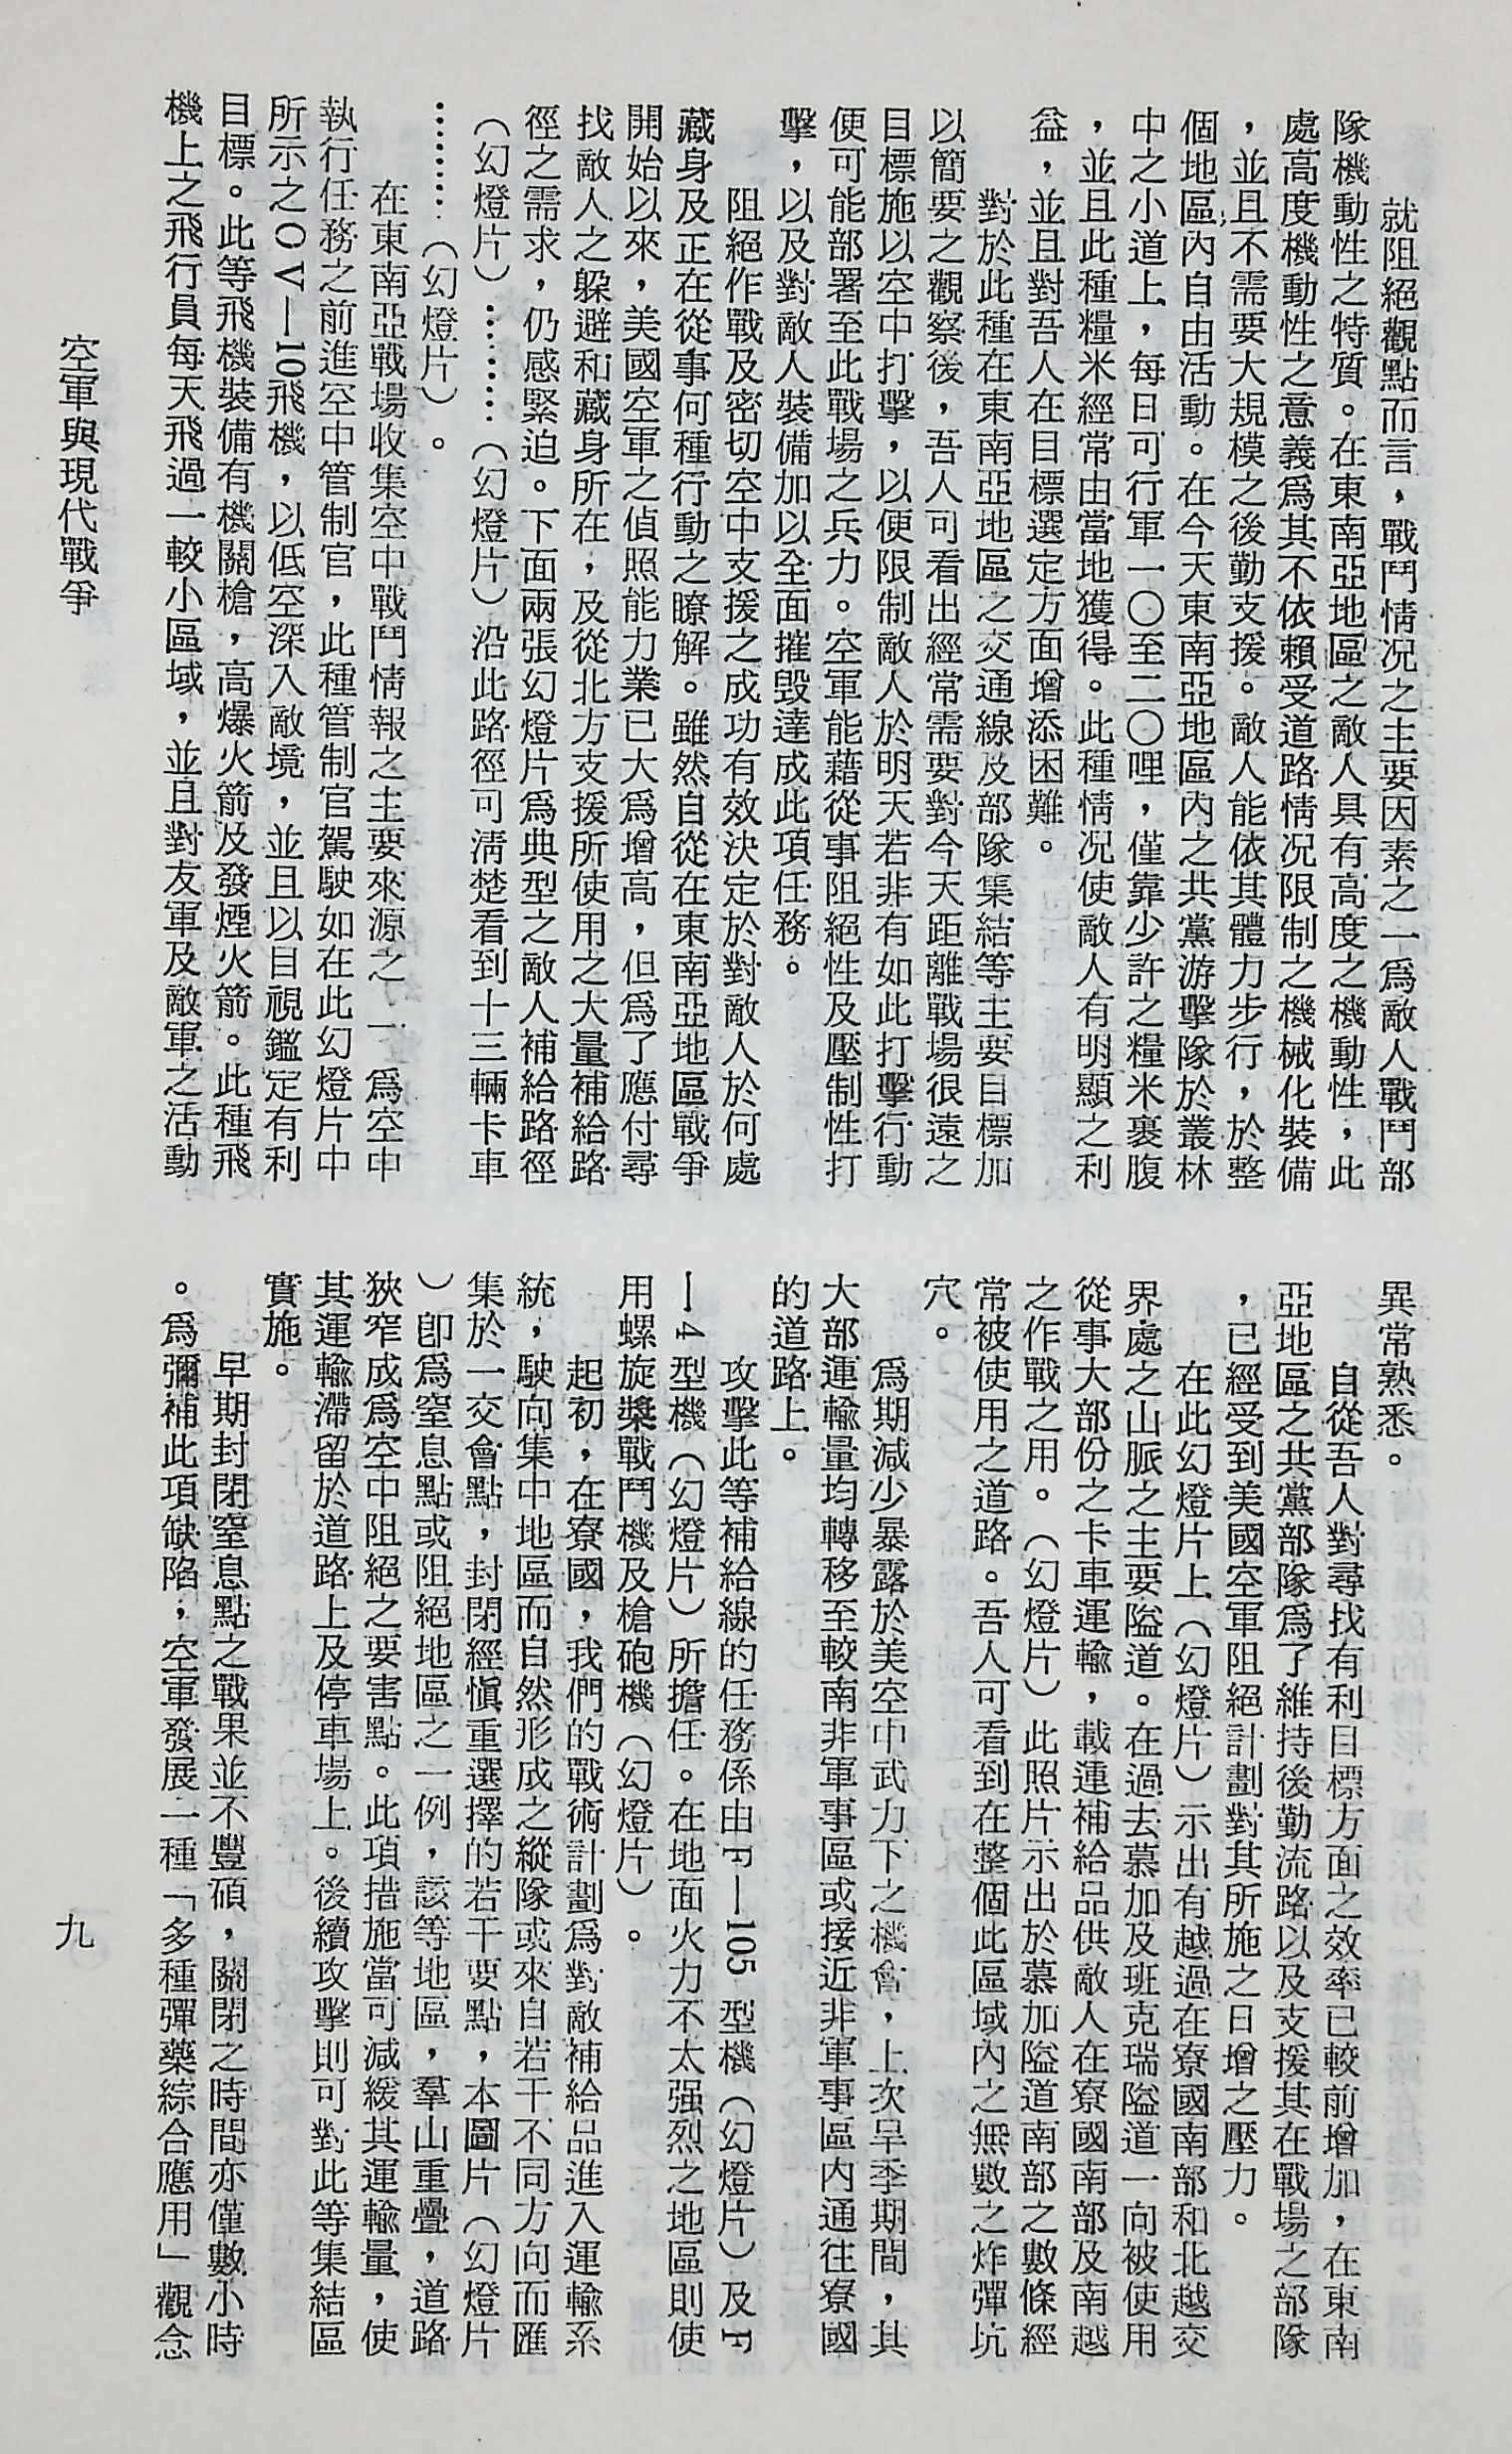 就阻絕觀點而言，戰鬥情況之主要因素之一爲敵人戰鬥部
隊機動性之特質。在東南亞地區之敵人具有高度之機動性，此
處高度機動性之意義爲其不依賴受道路情況限制之機械化裝備
，並且不需要大規模之後勤支援。敵人能依其體力步行，於整
個地區內自由活動。在今天東南亞地區內之共黨游擊隊於叢林
中之小道上，每日可行軍一〇至二〇哩，僅靠少許之糧米裹腹
，並且此種糧米經常由當地獲得。此種情況使敵人有明顯之利
益，並且對吾人在目標選定方面增添困難。
對於此種在東南亞地區之交通線及部隊集結等主要目標加
以簡要之觀察後，吾人可看出經常需要對今天距離戰場很遠之
目標施以空中打擊，以便限制敵人於明天若非有如此打擊行動
便可能部署至此戰場之兵力。空軍能藉從事阻絕性及壓制性打
擊，以及對敵人裝備加以全面摧毀達成此項任務。
阻絕作戰及密切空中支援之成功有效決定於對敵人於何處
藏身及正在從事何種行動之瞭解。雖然自從在東南亞地區戰爭
開始以來，美國空軍之偵照能力業已大爲增高，但爲了應付尋
找敵人之躱避和藏身所在，及從北方支援所使用之大量補給路
徑之需求，仍感緊迫。下面兩張幻燈片爲典型之敵人補給路徑
（幻燈片）………（幻燈片）沿此路徑可淸楚看到十三輛卡車
………（幻燈片）。
在東南亞戰場收集空中戰鬥情報之主要來源之一爲空中
執行任務之前進空中管制官，此種管制官駕駛如在此幻燈片中
所示之OV—10飛機，以低空深入敵境，並且以目視鑑定有利
目標。此等飛機裝備有機關槍，高爆火箭及發煙火箭。此種飛
機上之飛行員每天飛過一較小區域，並且對友軍及敵軍之活動
異常熟悉。
自從吾人對尋找有利目標方面之效率已較前增加，在東南
亞地區之共黨部隊爲了維持後勤流路以及支援其在戰場之部隊
，已經受到美國空軍阻絕計劃對其所施之日增之壓力。
在此幻燈片上（幻燈片）示出有越過在寮國南部和北越交
界處之山脈之主要隘道。在過去慕加及班克瑞隘道一向被使用
從事大部份之卡車運輸，載運補給品供敵人在寮國南部及南越
之作戰之用。（幻燈片）此照片示出於慕加隘道南部之數條經
常被使用之道路。吾人可看到在整個此區域內之無數之炸彈坑
穴。
爲期減少暴露於美空中武力下之機會，上次旱季期間，其
大部運輸量均轉移至較南非軍事區或接近非軍事區內通往寮國
的道路上。
攻擊此等補給線的任務係由F—105 型機（幻燈片）及F
—4型機（幻燈片）所擔任。在地面火力不太强烈之地區則使
用螺旋槳戰鬥機及槍砲機（幻燈片）。
起初，在寮國，我們的戰術計劃爲對敵補給品進入運輸系
統，駛向集中地區而自然形成之縱隊或來自若干不同方向而匯
集於一交會點，封閉經愼重選擇的若干要點，本圖片（幻燈片
）卽爲窒息點或阻絕地區之一例，該等地區，羣山重疊，道路
狹窄成爲空中阻絕之要害點。此項措施當可減緩其運輸量，使
其運輸滯留於道路上及停車場上。後續攻擊則可對此等集結區
實施。
早期封閉窒息點之戰果並不豐碩，關閉之時間亦僅數小時
。爲彌補此項缺陷，空軍發展一種「多種彈藥綜合應用」觀念
空軍與現代戰爭
九